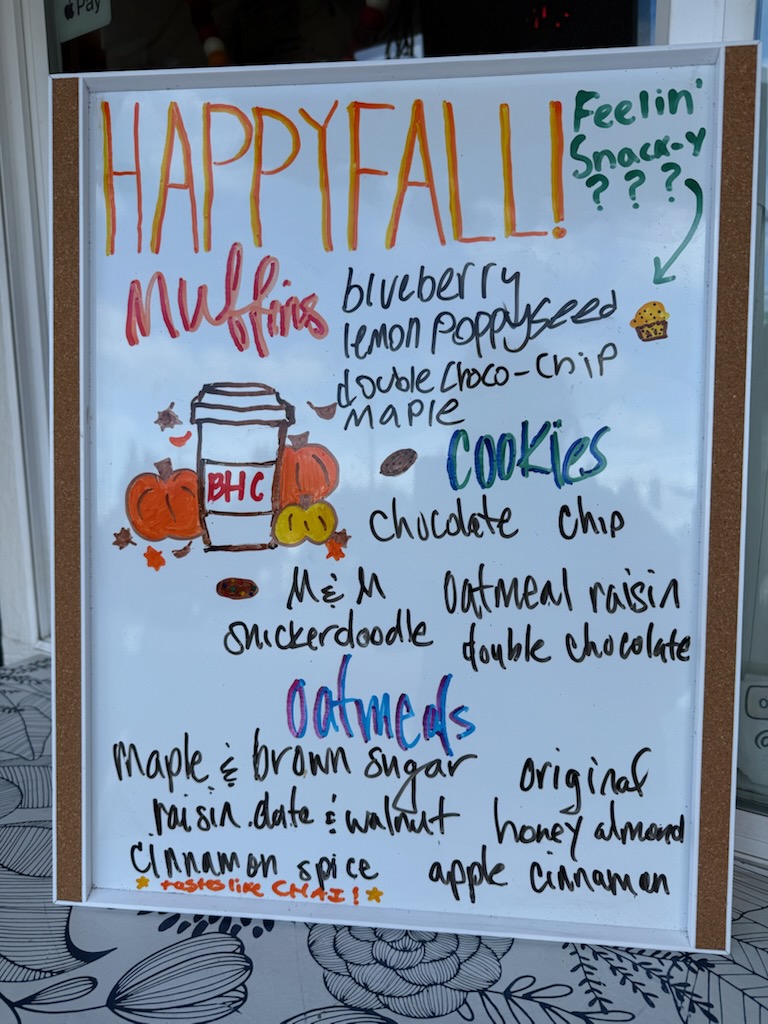 Pay
HAPPY FALL!
Feelin'
Snack-y
???
Muffins
blueberry
lemon poppyseed
double choco-chip
maple
BHC
Cookies
chocolate chip
M & M
oatmeal raisin
snickerdoodle
double chocolate
Oatmeals
maple & brown sugar
original
raisin. date & walnut
honey almond
cinnamon spice
apple cinnamon
tastes like CHAI!